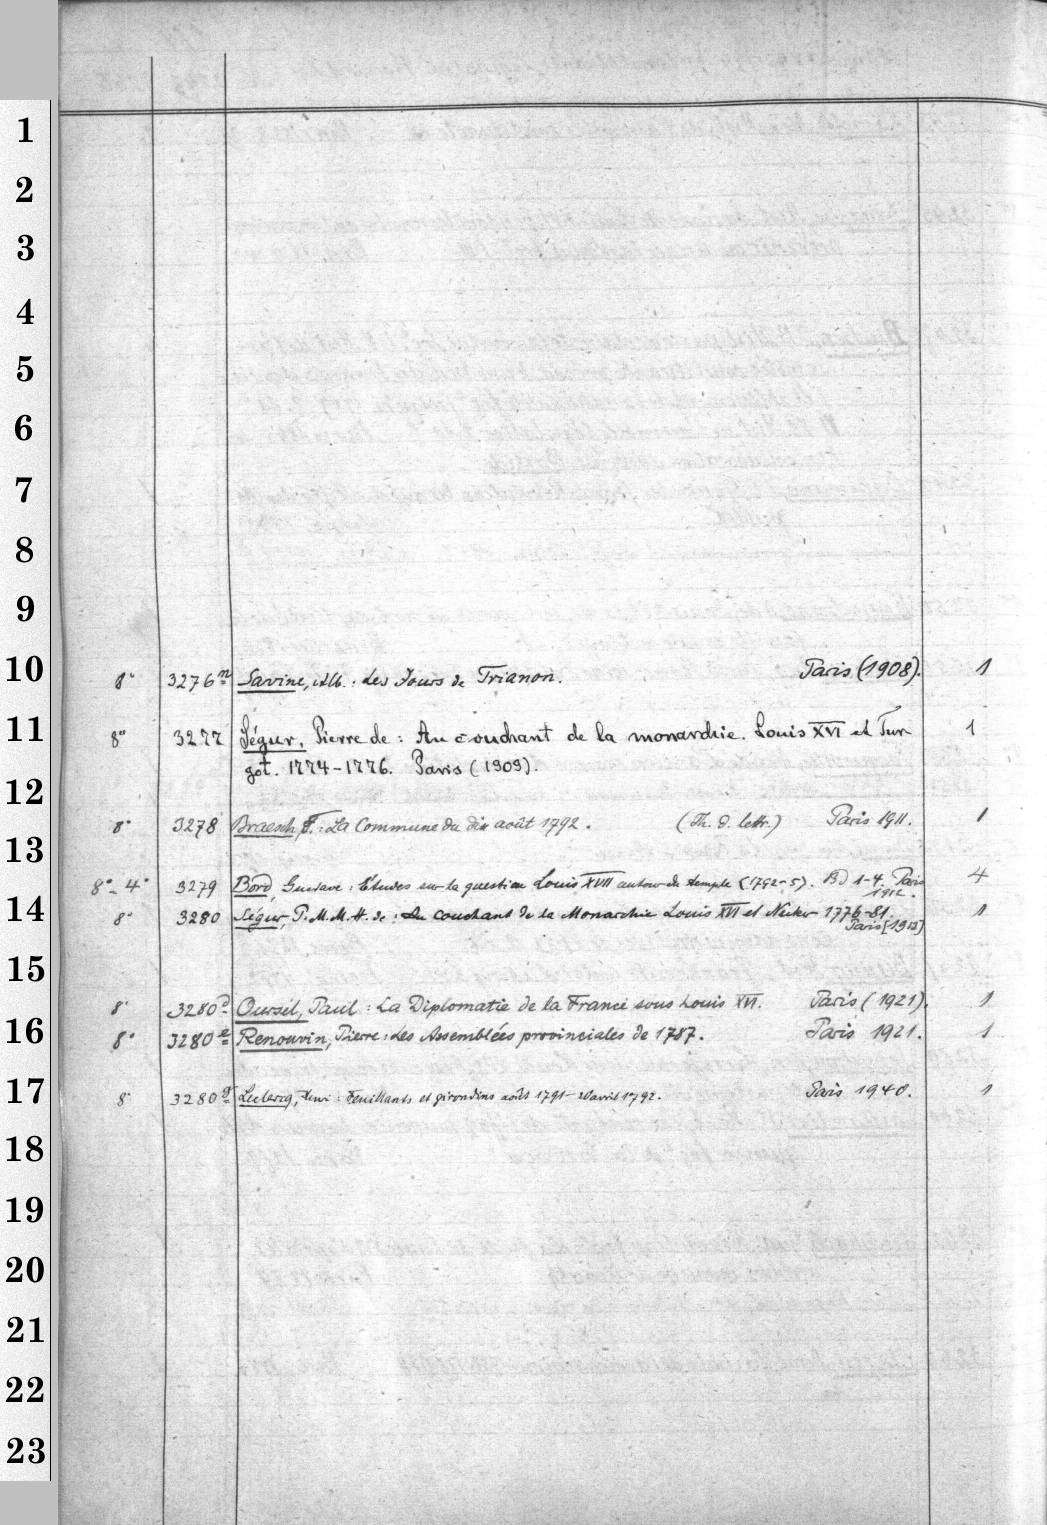 1
2
3
4
5
6
7
8
9
10 8° 3276n Savine, Alb.: Les Jours de Trianon. Paris (1908). 1
11 8° 3277 Ségur, Pierre de: Au couchant de la monarchie. Louis XVI et Tur-
got. 1774-1776. Paris (1909). 1
12
8° 3278 Braesch, F.: La Commune du dix août 1792. (Th. d. lettr.) Paris 1911. 1
13
8°-4° 3279 Bord, Gustave: Etudes sur la question Louis XVII autour du temple (1792-5). Bd 1-4. Paris
1912. 4
14 8° 3280 Ségur, P. M. M. H. de: Au couchant de la Monarchie Louis XVI et Necker 1776-81.
Paris [1913] 1
15
8° 3280d Oursel, Paul: La Diplomatie de la France sous Louis XVI. Paris (1921). 1
16 8° 3280e Renouvin, Pierre: Les Assemblées provinciales de 1787. Paris 1921. 1
17 8° 3280g Leclercq, Henri: Feuillants et girondins août 1791-20 avril 1792. Paris 1940. 1
18
19
20
21
22
23